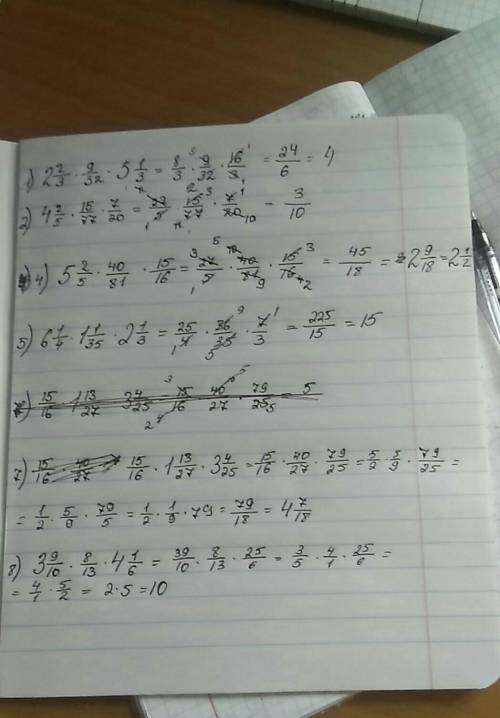 1) 2 2/3 · 9/32 · 5 1/3 = 8/3 · 9/32 · 16/3 = 24/6 = 4
2) 4 2/5 · 15/77 · 7/20 = 22/5 · 15/77 · 7/20 = 3/10
4) 5 2/5 · 40/81 · 15/16 = 27/5 · 40/81 · 15/16 = 45/18 = 2 9/18 = 2 1/2
5) 6 1/4 · 1 1/35 · 2 1/3 = 25/4 · 36/35 · 7/3 = 225/15 = 15
15/16 · 1 13/27 3 4/25 15/16 40/27 79/25 5
7) 15/16 · 40/27 15/16 · 1 13/27 · 3 4/25 = 15/16 · 40/27 · 79/25 = 5/2 · 5/9 · 79/25 =
= 1/2 · 5/9 · 79/5 = 1/2 · 1/9 · 79 = 79/18 = 4 7/18
8) 3 9/10 · 8/13 · 4 1/6 = 39/10 · 8/13 · 25/6 = 3/5 · 4/1 · 25/6 =
= 4/1 · 5/2 = 2 · 5 = 10